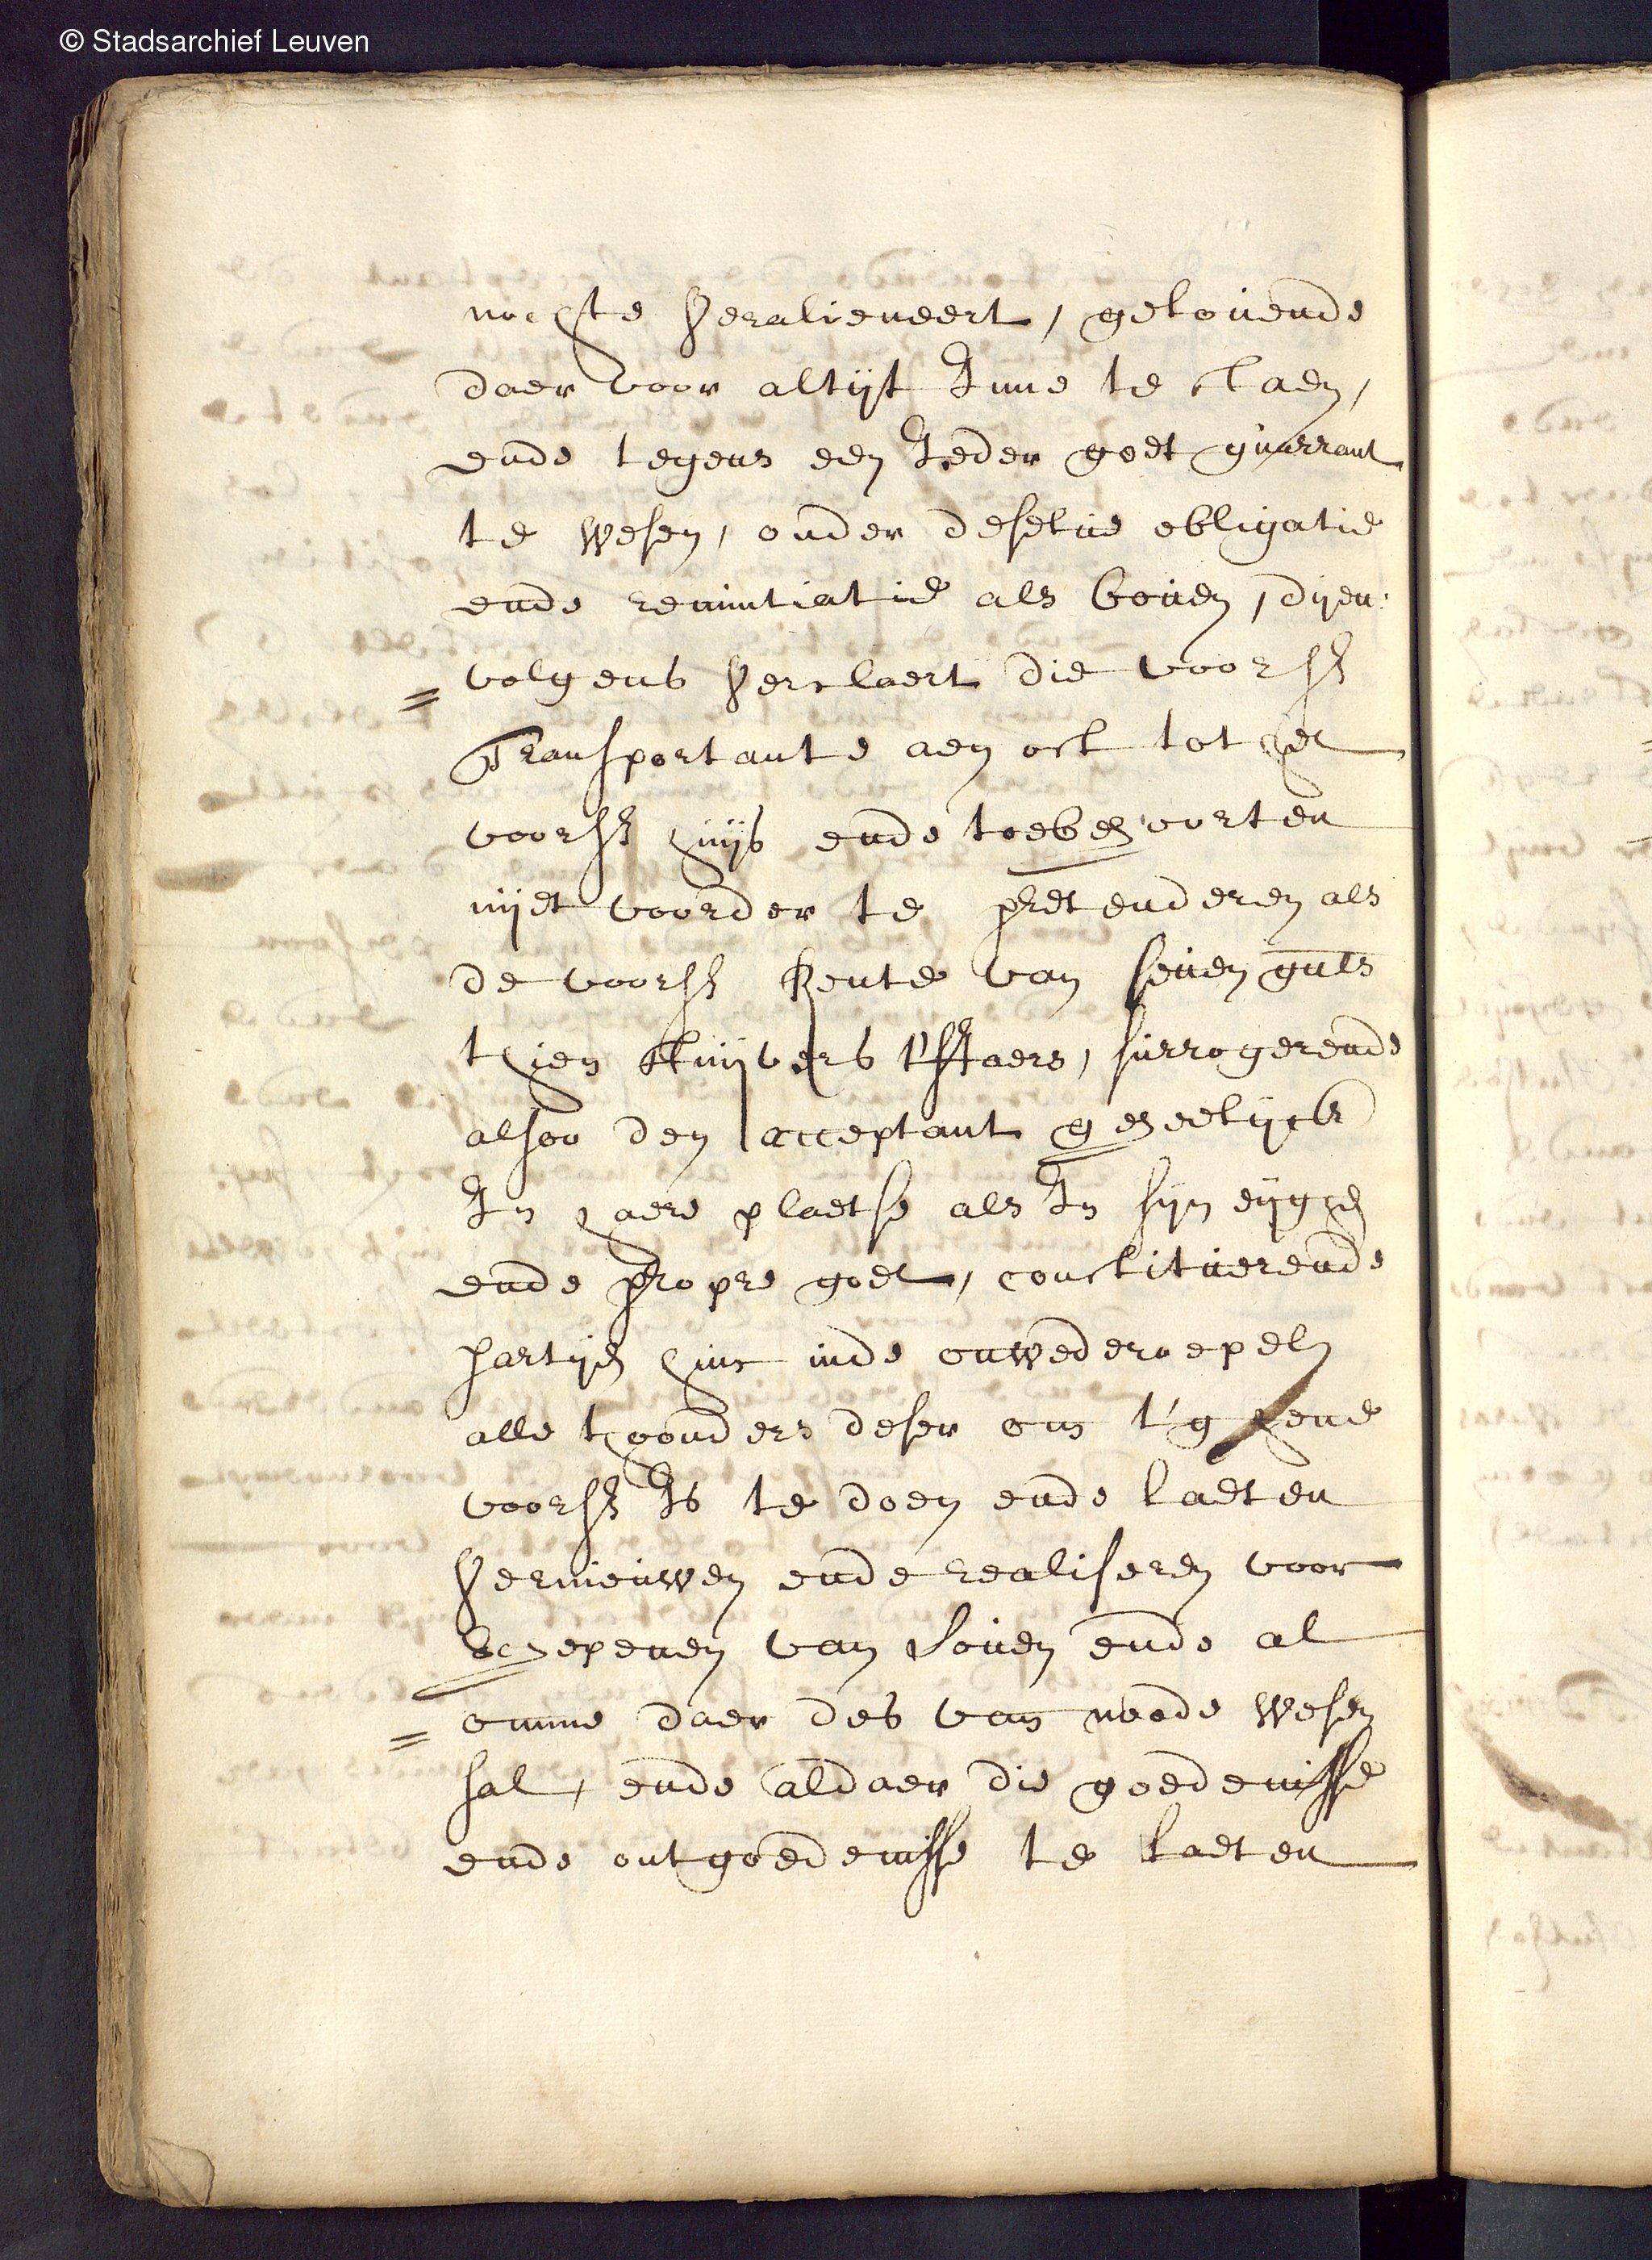 © Stadsarchief Leuven
nochte veralieneert, gelovende
daer voor altijt Inne te staen,
ende tegens een Ieder goet guarrant
te wesen, onder deselve obligatie
ende renuntiatie als boven, dyen:
= volgens verclaert die voorss
Transportante aen oft tot het
voorss huijs ende toebehoorten
nyet voorder te pretenderen als
de voorss Rente van seven guls
thien stuijvers t'sIaers, surrogerende
alsoo den acceptant geheelijck
In haere plaetse als In sijn eijgen
ende propre goet, constituerende
partijen hinc inde onwederroepel
alle thoonders deser om t'gheene
voorss Is te doen ende laeten
vernieuwen ende realiseren voor
Schepenen van Loven ende al
= omme daer des van noode wesen
sal, ende aldaer die goedenisse
ende ontgoedenisse te laeten